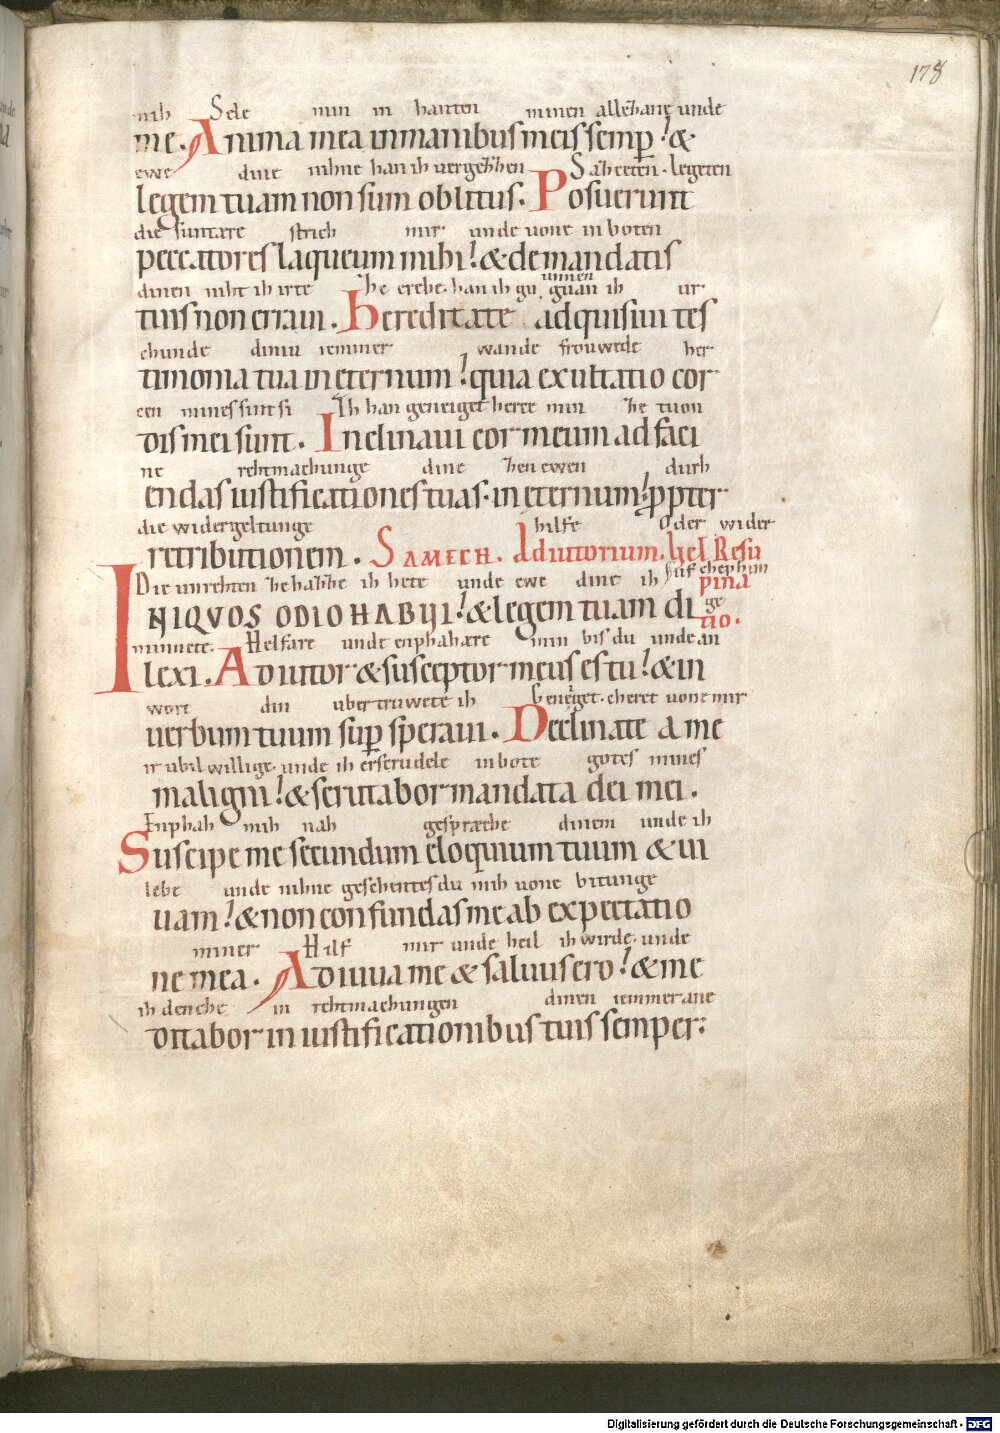 178
mih Sele min in hanten minen allezane unde
me. Anima mea in manibus meis semp̱! &
ewe dine nihne han ih vergezzen Sazeten. legeten
legem tuam non sum oblitus. Posuerunt
die suntare strich mir unde uone in boten
peccatores laqueum mihi! & de mandatis
dinen niht ih irte ze erebe. han ih gu unnen guan ih ur
tuis non erraui. Hereditate adquisiui tes
chunde diniu iemmer wande frouwede her
timonia tua in ęternum! quia exultatio cor
cen mines sint si Ih han geneiget herce min ze tuon
dis mei sunt. Inclinaui cor meum ad faci
ne rehtmachunge dine zen ewen durh
endas iustificationes tuas. in ęternum! ꝓpter
die widergeltunge hilfe oder wider
retributionem. SAMECH. Adiutorium. uel Resu
Die unrehten ze hazze ih hete unde ewe dine ih suf chephun pina
INIQVOS ODIO HABUI! & legem tuam di ge tio.
minnete. Helfare unde enphahære min bis du unde an
lexi. Adiutor & susceptor meus es tu! & in
wort din ubertruwete ih Geneiget. cheret uone mir
uerbum tuum sup̱ speraui. Declinate a me
ir ubil willige. unde ih erscrudele in bote gotes mines
maligni! & scrutabor mandata dei mei.
Enphah mih nah gespræche dinem unde ih
Suscipe me secundum eloquium tuum & ui
lebe unde nihne geschentes du mih uone bitunge
uam! & non confundas me ab expectatio
miner Hilf mir unde heil ih wirde. unde
ne mea. Adiuua me & saluus ero! & me
ih denche in rehtmachungen dinen iemmerane
ditabor in iustificationibus tuis semper.
Digitalisierung gefördert durch die Deutsche Forschungsgemeinschaft - DFG